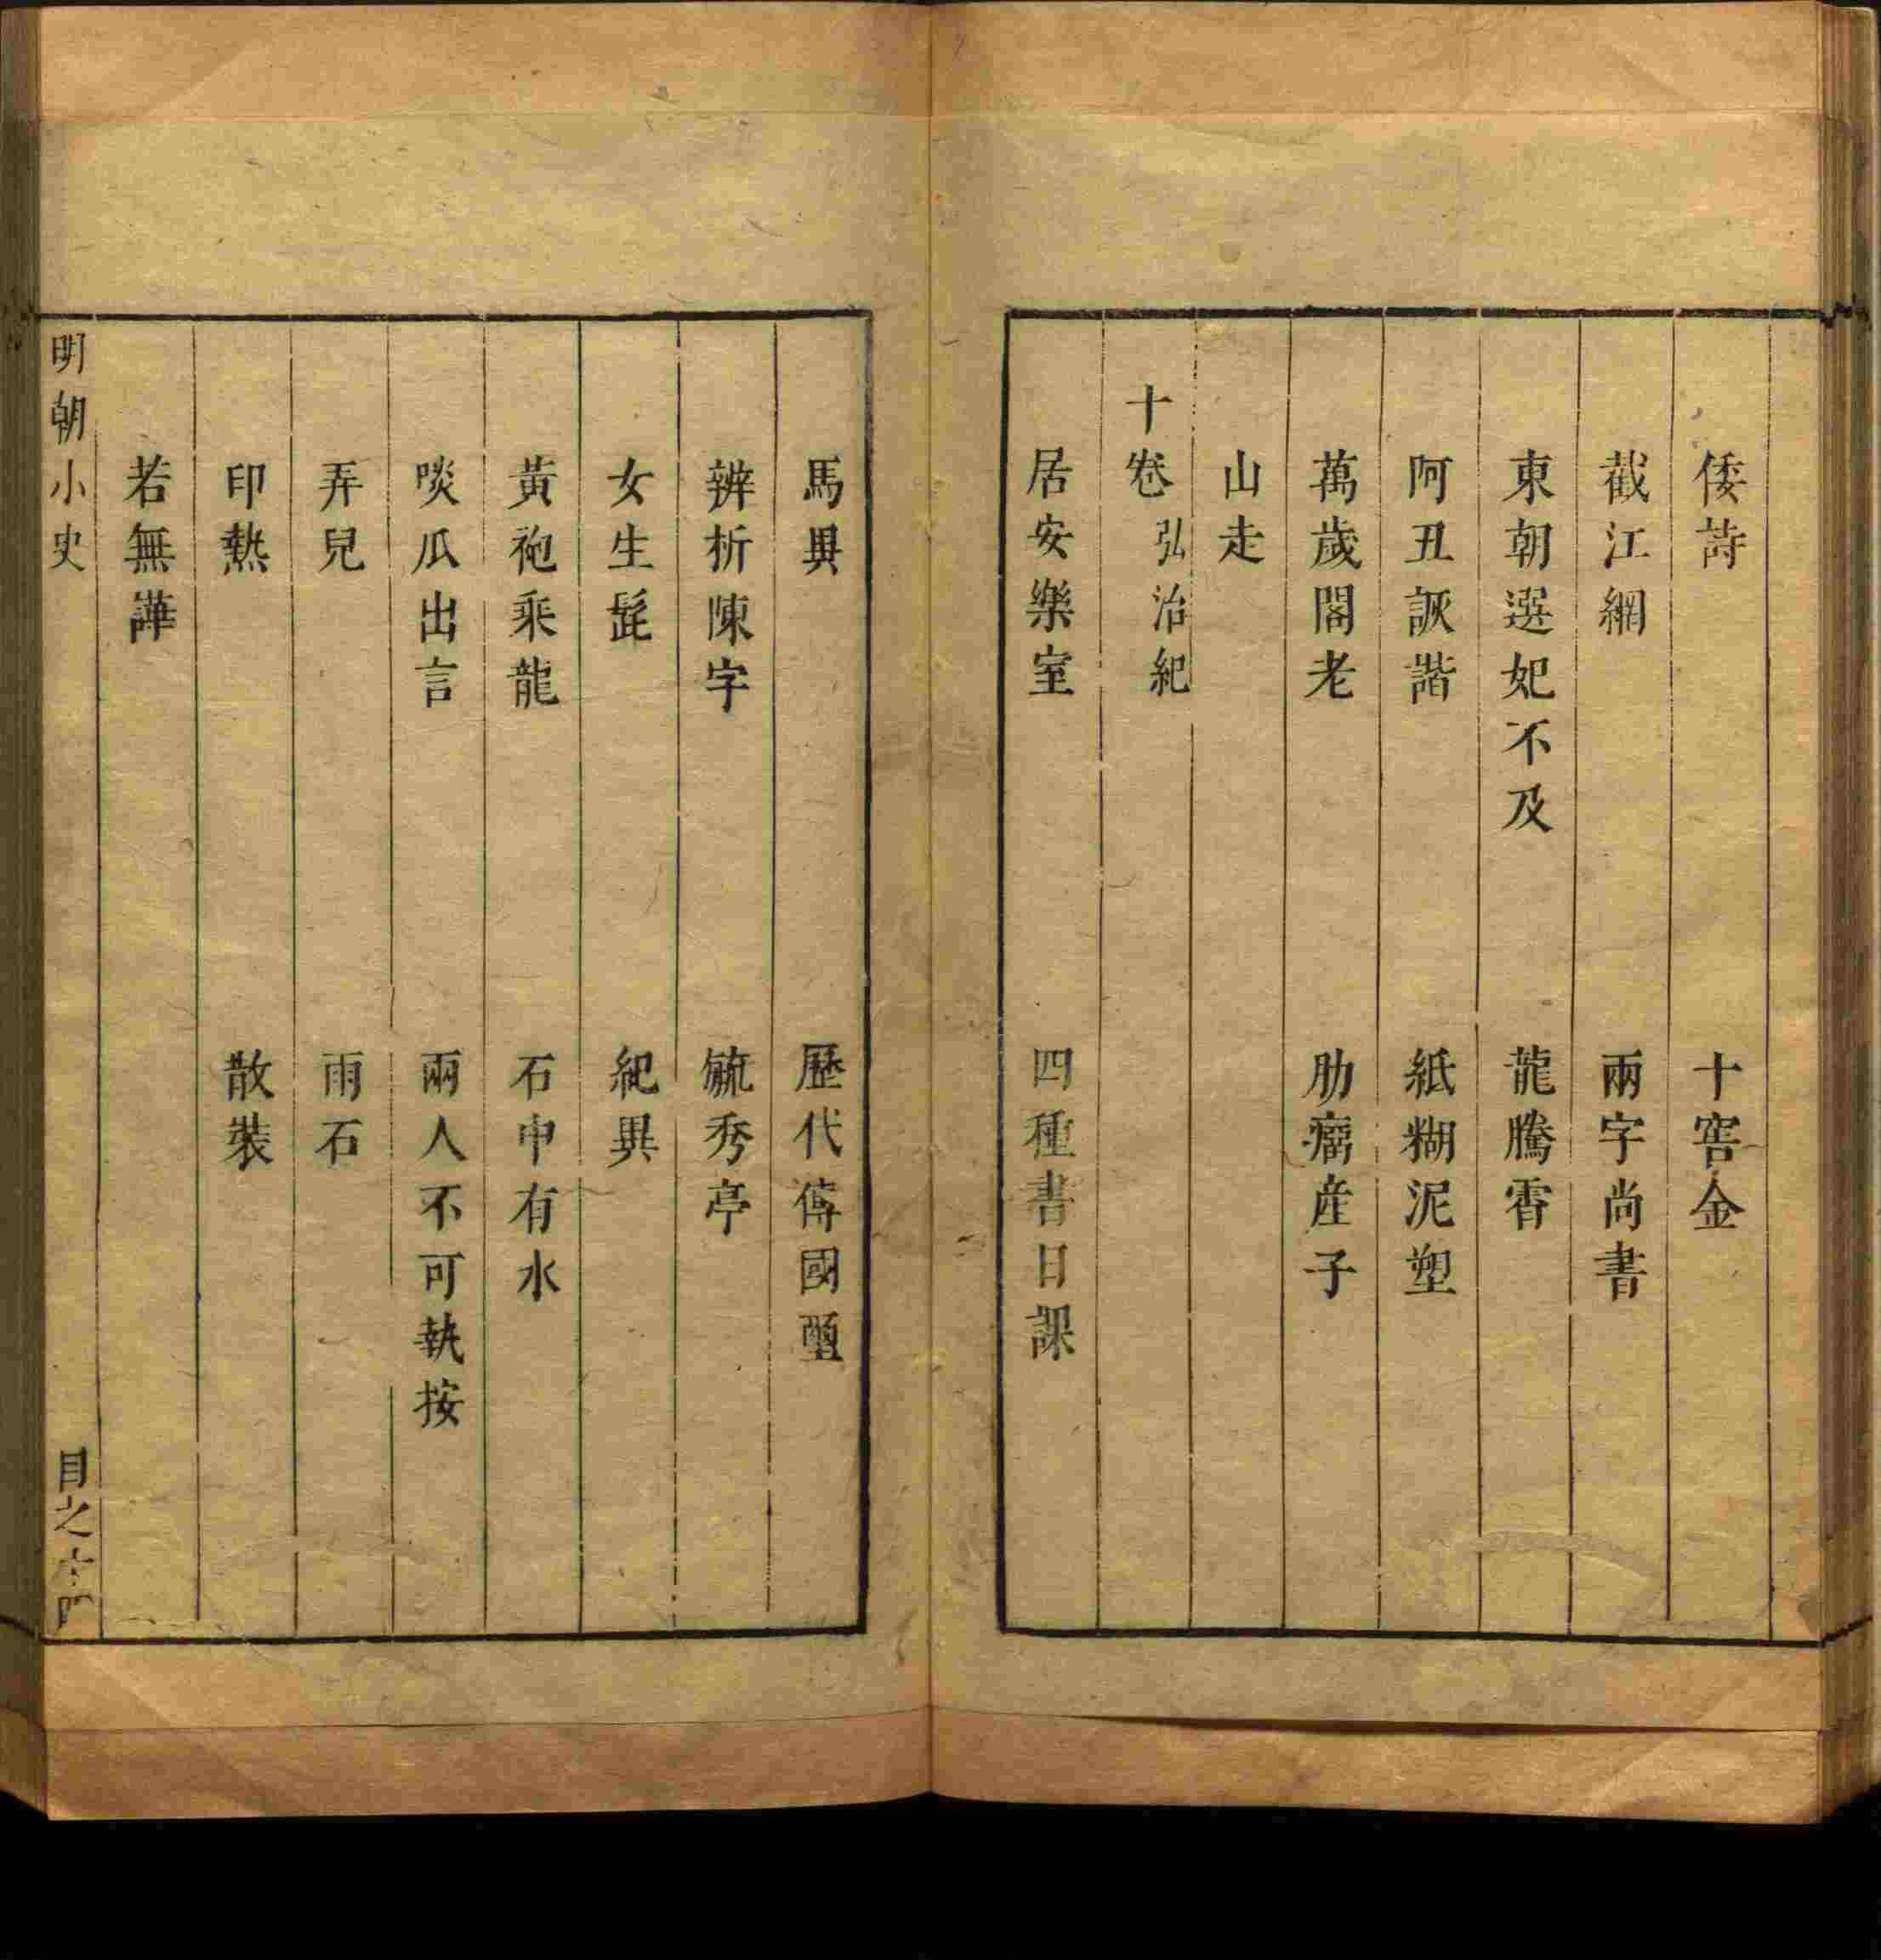 倭詩　十窖金
截江網　兩字尚書
東朝選妃不及　龍騰霄
阿丑詼諧　紙糊泥塑
萬歲閣老　肋瘤産子
山走
十卷　弘治紀
居安樂室　四種書日課
馬異　歷代傳國璽
辨析陳字　毓秀亭
女生髭　紀異
黃袍乘龍　石中有水
啖瓜出言　兩人不可執按
弄兒　雨石
印熱　散裝
若無譁
明朝小史　目之十四